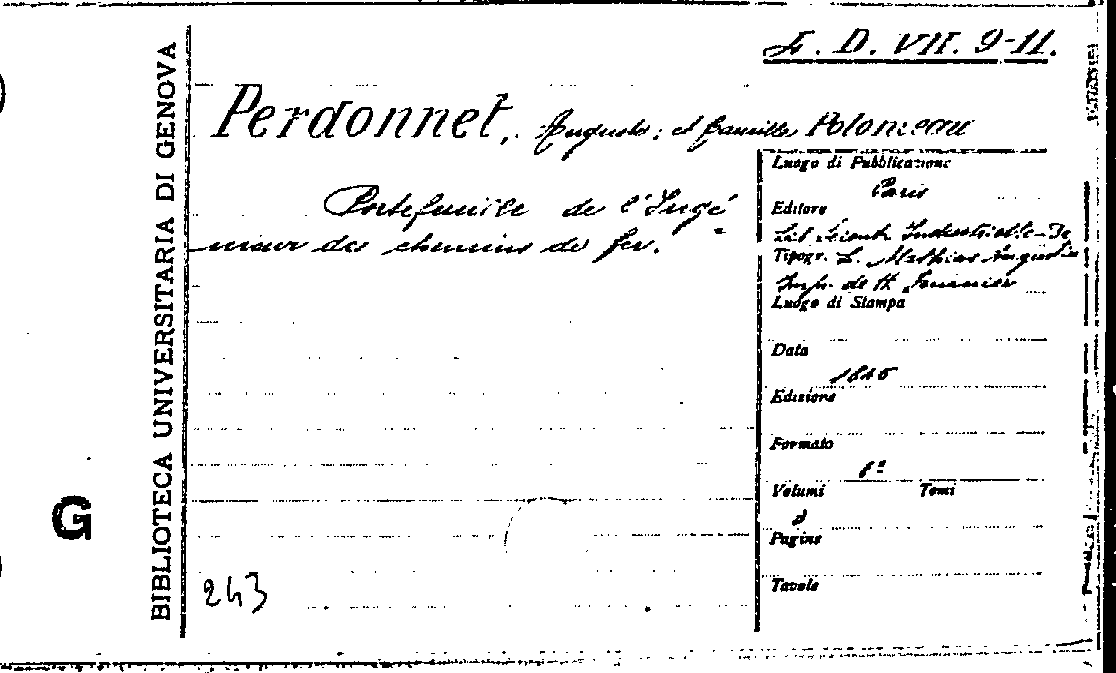 BIBLIOTECA UNIVERSITARIA DI GENOVA
G
F. D. VII. 9-11.
Perdonnet, Auguste; et Camille Polonceau
Portefeuille de l'Ingé-
nieur des chemins de fer.
Luogo di Pubblicazione
Paris
Editore
Lib. Scient. Industrielle De
Tipogr. L. Mathias Augustin
Imp. de H. Fournier
Luogo di Stampa
Data
Edizione
Formato
8º
Volumi Tomi
Pagine
Tavole
243